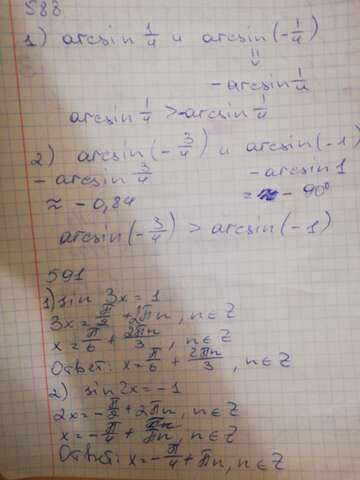 588
1) arcsin 1/4 и arcsin(-1/4)
=
- arcsin 1/4
arcsin 1/4 > -arcsin 1/4
2) arcsin(-3/4) и arcsin(-1)
- arcsin 3/4 - arcsin 1
≈ - 0,84 = - 90°
arcsin(-3/4) > arcsin(-1)
591
1) sin 3x = 1
3x = π/2 + 2πn, n∈Z
x = π/6 + 2πn/3, n∈Z
Ответ: x = π/6 + 2πn/3, n∈Z
2) sin 2x = -1
2x = -π/2 + 2πn, n∈Z
x = -π/4 + πn, n∈Z
Ответ: x = -π/4 + πn, n∈Z